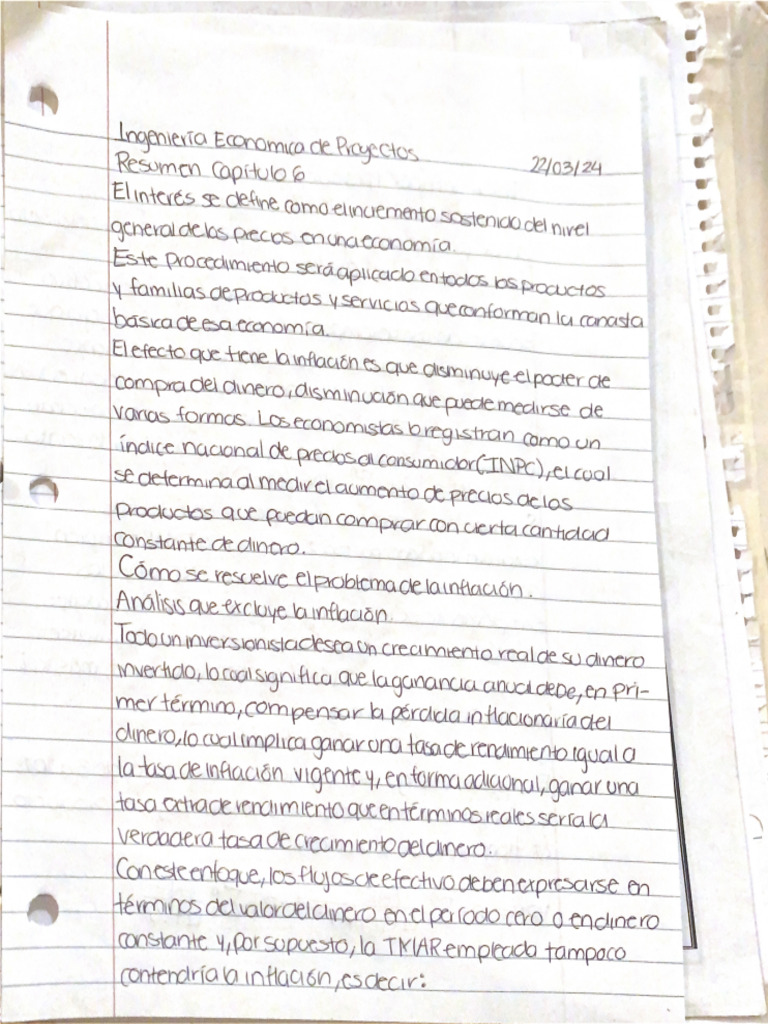 Ingeniería Economica de Proyectos
22/03/24
Resumen Capitulo 6
El interés se define como el incremento sostenido del nivel
general de los precios en una economía.
Este procedimiento será aplicado en todos los productos
y familias de productos y servicios que conforman la canasta
básica de esa economía.
El efecto que tiene la inflación es que disminuye el poder de
compra del dinero, disminución que puede medirse de
varias formas. Los economistas lo registran como un
índice nacional de precios al consumidor (INPC), el cual
se determina al medir el aumento de precios de los
productos que puedan comprar con cierta cantidad
constante de dinero.
Cómo se resuelve el problema de la inflación.
Análisis que excluye la inflación.
Todo un inversionista desea un crecimiento real de su dinero
invertido, lo cual significa que la ganancia anual debe, en pri-
mer término, compensar la pérdida inflacionaria del
dinero, lo cual implica ganar una tasa de rendimiento igual a
la tasa de inflación vigente y, en forma adicional, ganar una
tasa extra de rendimiento que en términos reales sería la
verdadera tasa de crecimiento del dinero.
Con este enfoque, los flujos de efectivo deben expresarse en
términos del valor del dinero en el período cero o en dinero
constante y, por supuesto, la TMAR empleada tampoco
contendría la inflación, es decir: